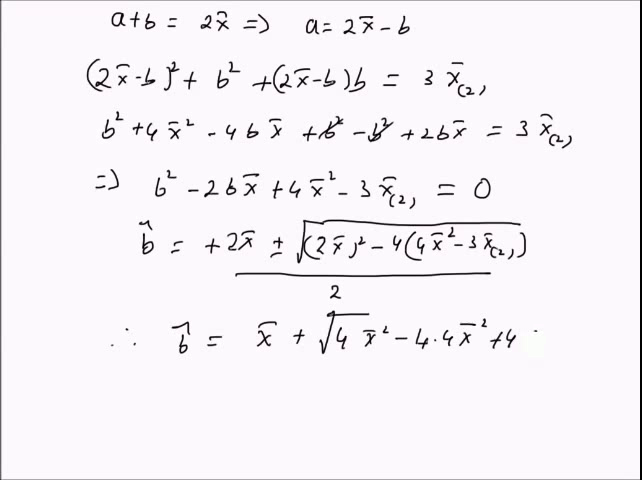 a+b = 2x̄ => a = 2x̄ - b
(2x̄-b)² + b² + (2x̄-b)b = 3 x̄₍₂,
b² + 4x̄² - 4bx̄ + b² - b² + 2bx̄ = 3 x̄₍₂,
=> b² - 2bx̄ + 4x̄² - 3x̄₍₂, = 0
b̂ = +2x̄ ± √((2x̄)² - 4(4x̄² - 3x̄₍₂,)) / 2
∴ b̂ = x̄ + √4x̄² - 4.4x̄² + 4